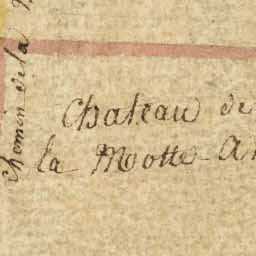 Chemin de la
Chateau de
la Motte